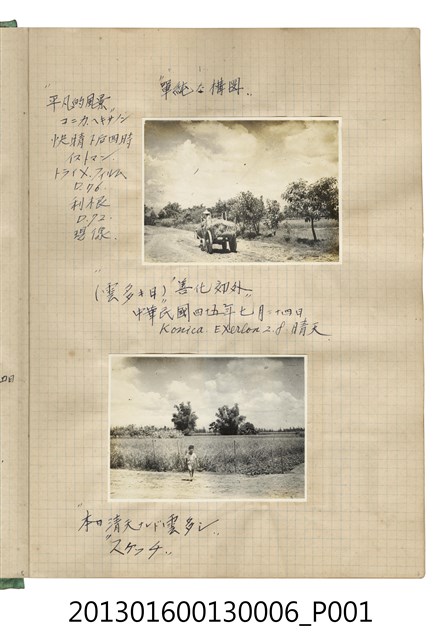 "單純な構圖"
"平凡的風景"
コニカ.ヘキサノン
快晴 下后四時
イストマン
トライX.フィルム
D.76.
利根
D.72.
現像.
(雲多キ日)"善化郊外"
中華民國四五年七月二十四日
Konica. Exerlon 2.8. 晴天
"本日清天ナレド雲多シ
"スケッチ"
201301600130006_P001